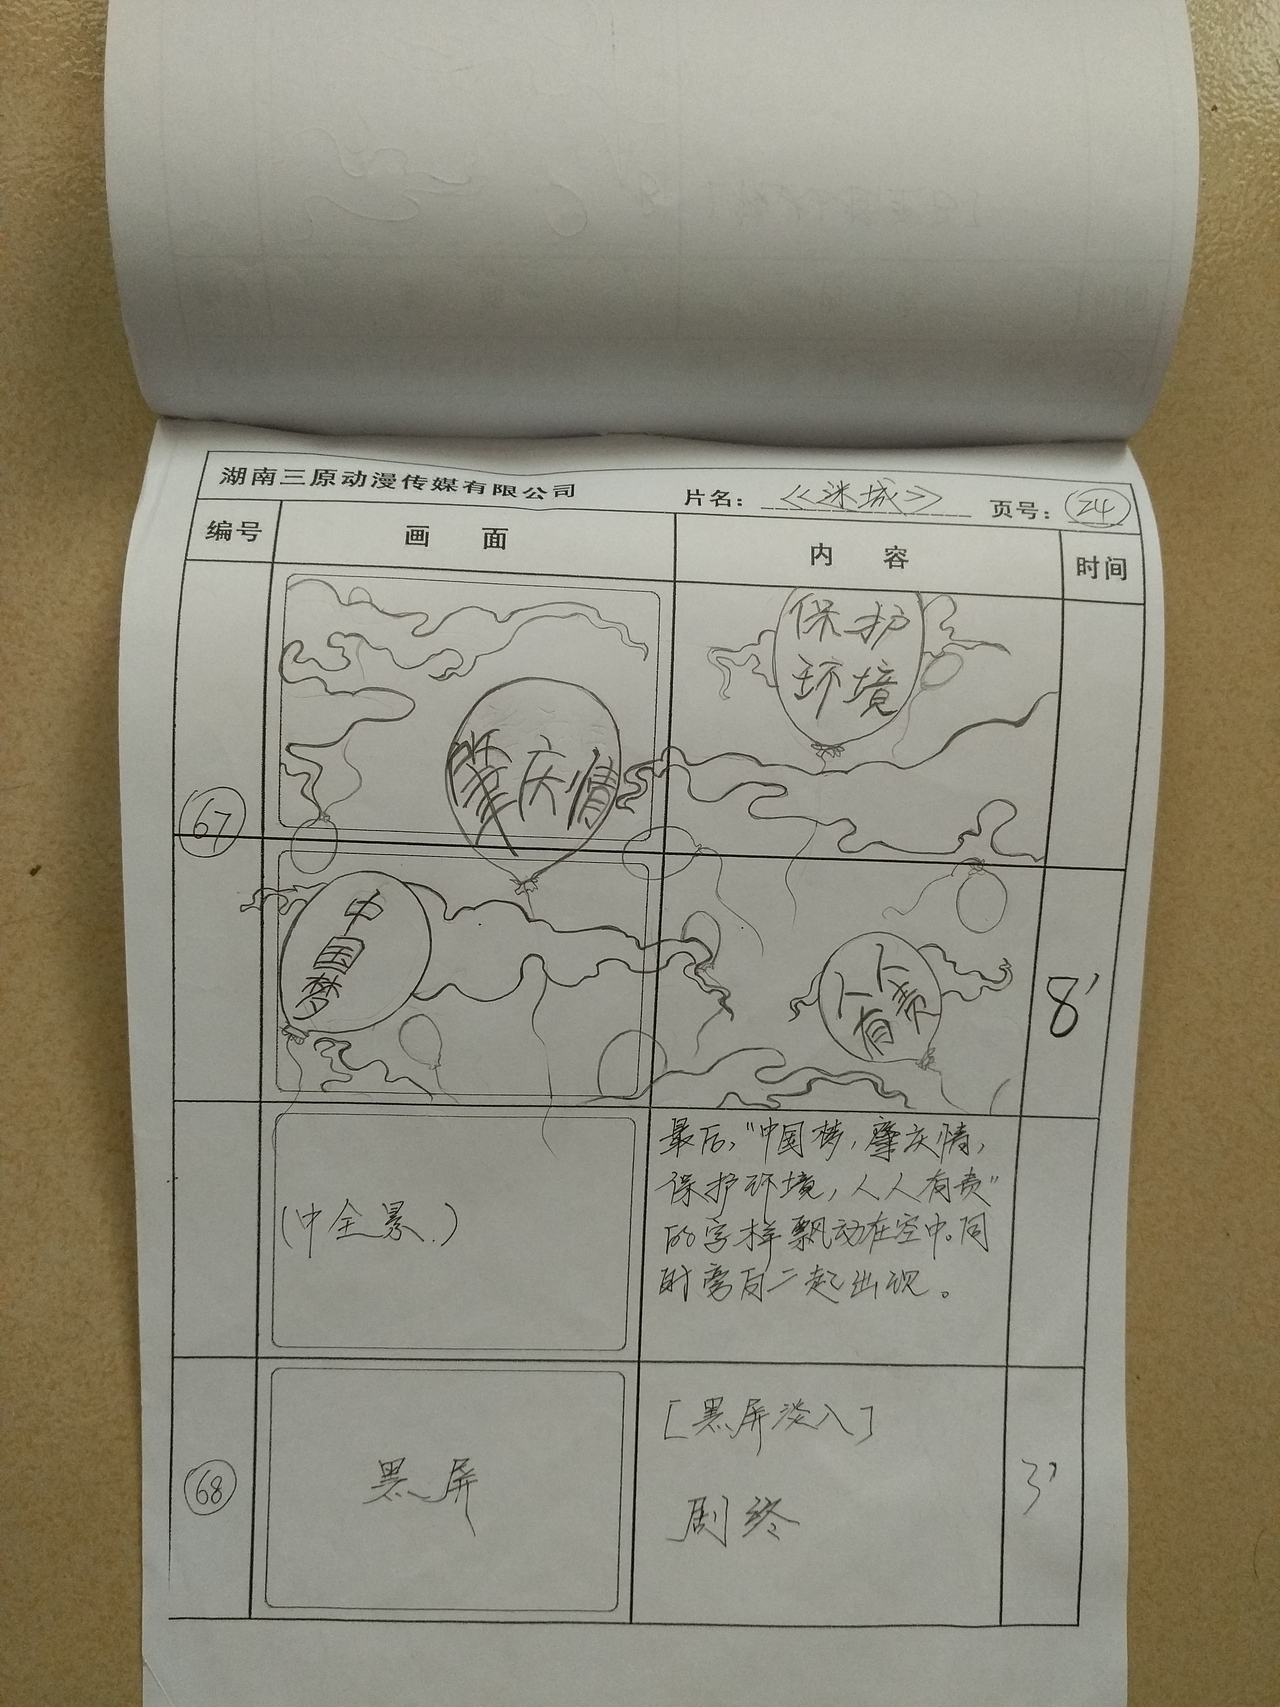 湖南三原动漫传媒有限公司 片名：《迷城》 页号：24
编号 画面 内容 时间
67
肇庆情
保护
环境
中国梦
人人
有责
8'
(中全景.)
最后，"中国梦，肇庆情，
保护环境，人人有责"
的字样飘动在空中。同
时旁白一起出现。
68
黑屏
[黑屏淡入]
剧终
3'